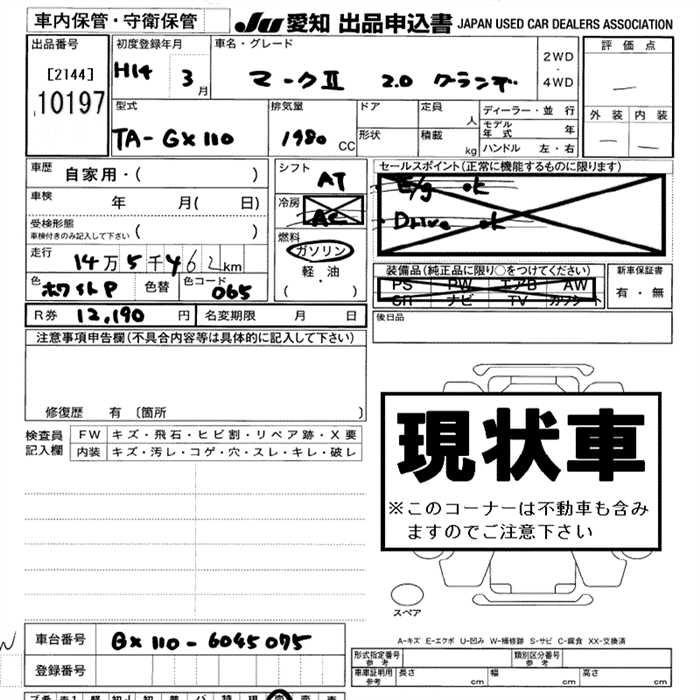 車内保管・守衛保管 JU 愛知 出品申込書 JAPAN USED CAR DEALERS ASSOCIATION
出品番号
[2144]
10197
初度登録年月
H14 3月
車名・グレード
マークⅡ 2.0 グランデ
2WD
・
4WD
評価点
外装 内装
型式
TA-GX110
排気量
1980 CC
ドア
形状
定員 人
積載 kg
ディーラー・並行
モデル年式 年
ハンドル 左・右
車歴 自家用・( )
車検 年 月( 日)
受検形態
車検付きのみ記入して下さい ( )
走行
14万5千462km
色 ホワイトP 色替 色コード 065
シフト
AT
冷房
AC
燃料
ガソリン
軽・油
( )
セールスポイント(正常に機能するものに限ります)
E/g ok
Drive ok
装備品(純正品に限り○をつけてください)
PS PW エアB AW
SR ナビ TV カワシート
新車保証書
有・無
R券 12,190 円 名変期限 月 日
後日品
注意事項申告欄(不具合内容等は具体的に記入して下さい)
修復歴 有 〔箇所 〕
検査員
記入欄
FW キズ・飛石・ヒビ割・リペア跡・X要
内装 キズ・汚レ・コゲ・穴・スレ・キレ・破レ
現状車
※このコーナーは不動車も含み
ますのでご注意下さい
スペア
A-キズ E-エクボ U-凹み W-補修跡 S-サビ C-腐食 XX-交換済
車台番号 GX110-6045075
登録番号
形式指定番号
参考
類別区分番号
参考
車庫証明用
参考
長さ cm 幅 cm 高さ cm